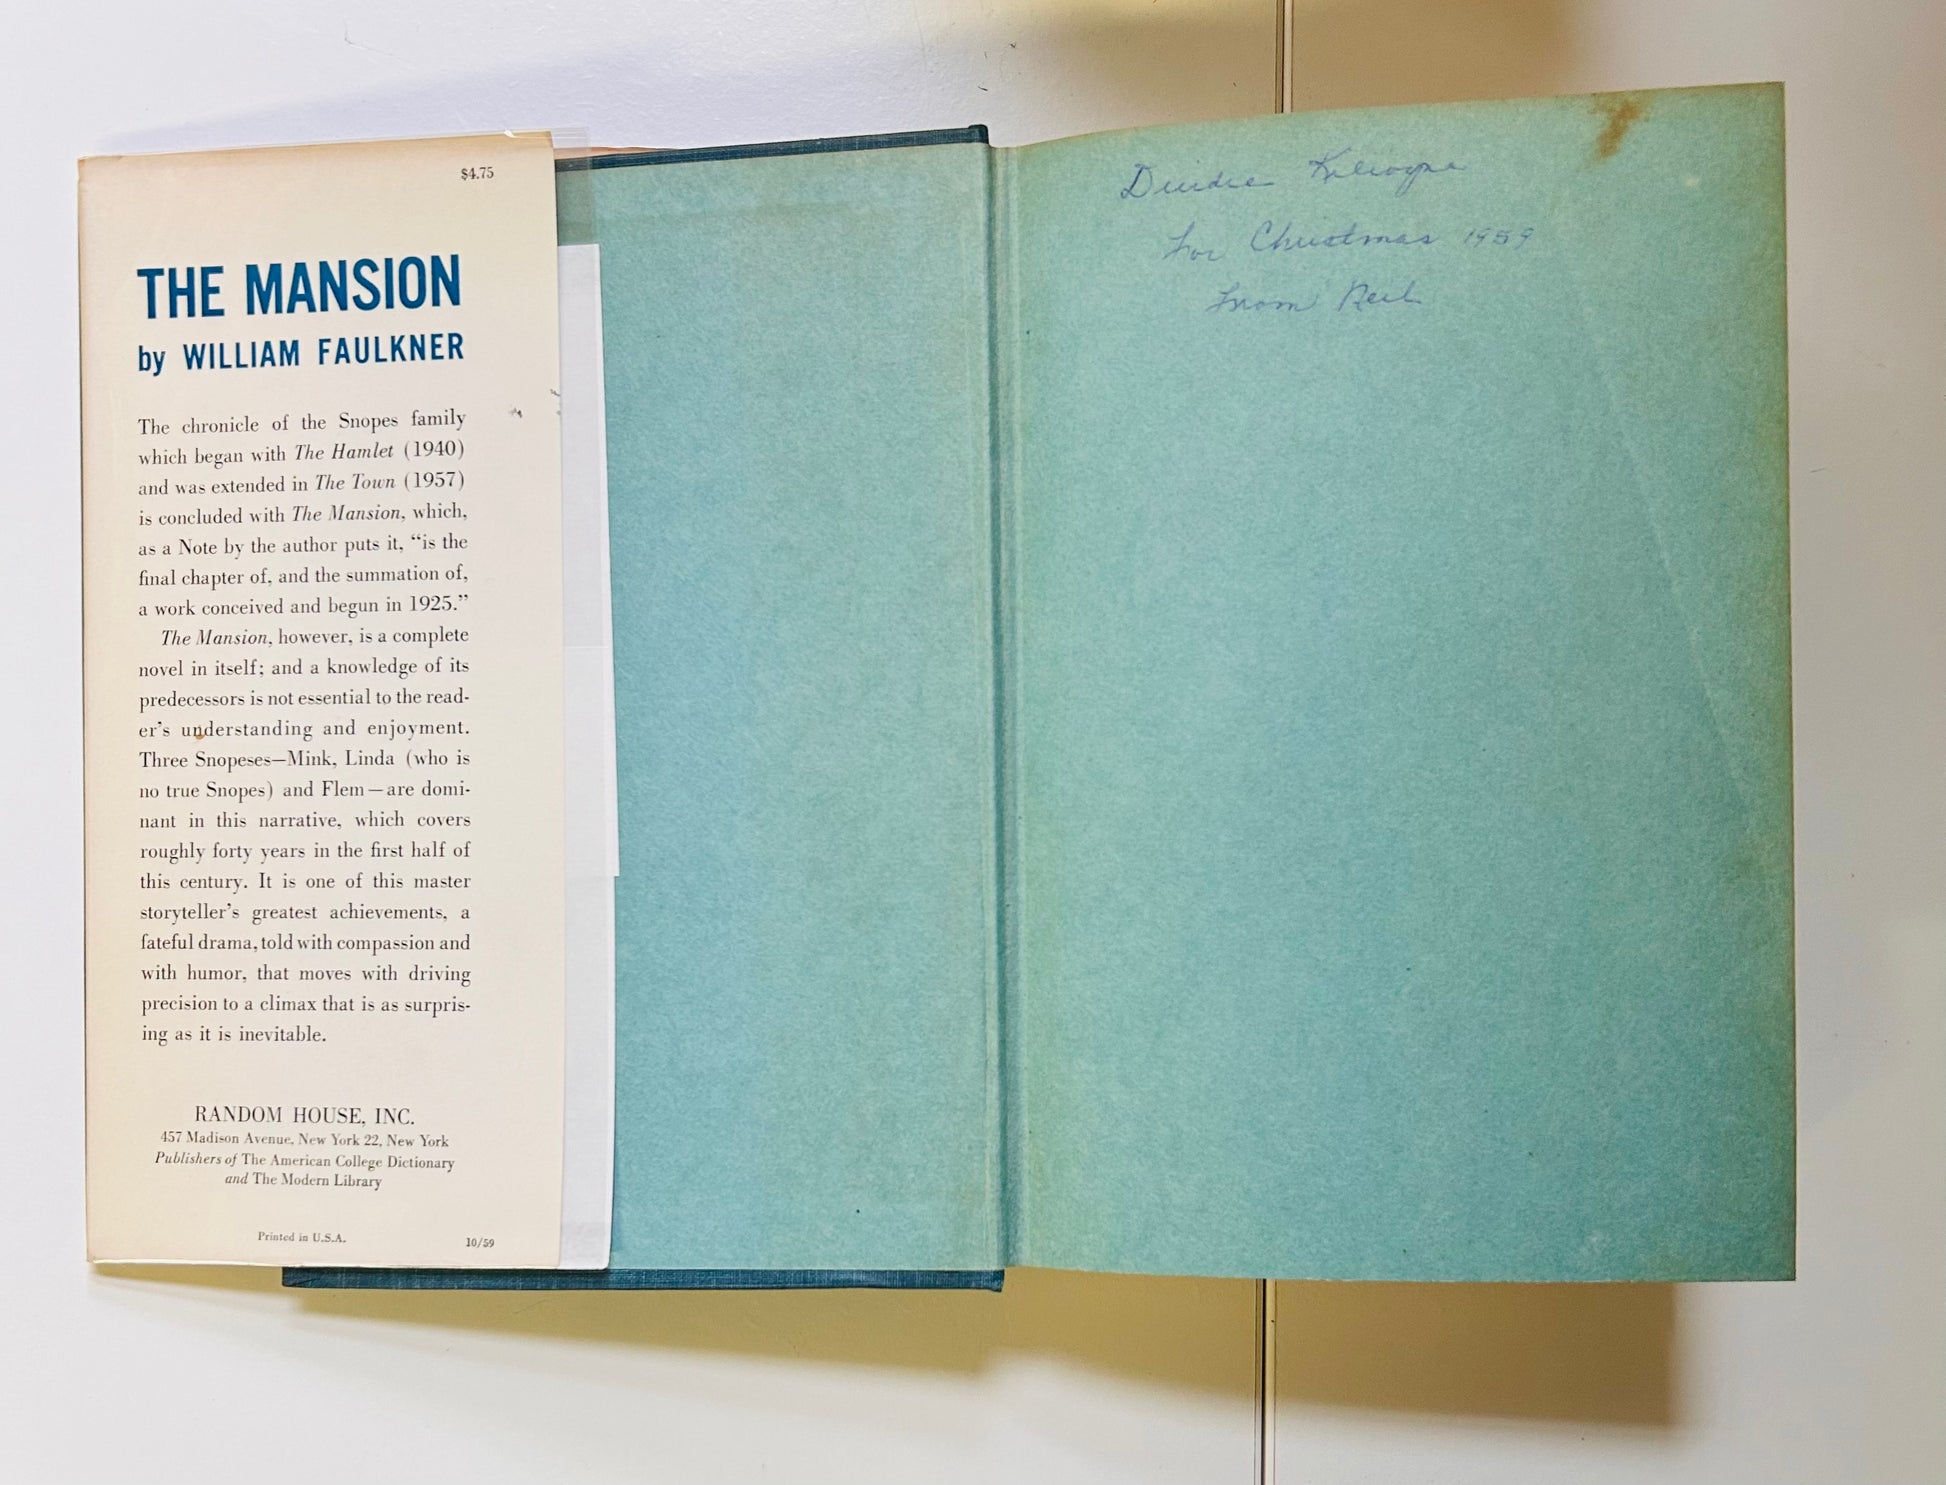 $4.75
THE MANSION
by WILLIAM FAULKNER
The chronicle of the Snopes family
which began with The Hamlet (1940)
and was extended in The Town (1957)
is concluded with The Mansion, which,
as a Note by the author puts it, “is the
final chapter of, and the summation of,
a work conceived and begun in 1925.”
The Mansion, however, is a complete
novel in itself; and a knowledge of its
predecessors is not essential to the read-
er’s understanding and enjoyment.
Three Snopeses—Mink, Linda (who is
no true Snopes) and Flem—are domi-
nant in this narrative, which covers
roughly forty years in the first half of
this century. It is one of this master
storyteller’s greatest achievements, a
fateful drama, told with compassion and
with humor, that moves with driving
precision to a climax that is as surpris-
ing as it is inevitable.
RANDOM HOUSE, INC.
457 Madison Avenue, New York 22, New York
Publishers of The American College Dictionary
and The Modern Library
Printed in U.S.A.
10/59
Deirdre
For Christmas 1959
From